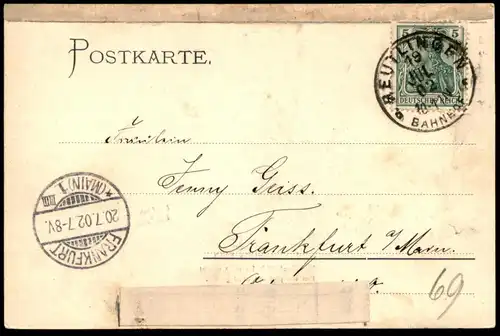 POSTKARTE.
5 5
DEUTSCHES REICH
REUTLINGEN
19
JUL
02
BAHNHOF
Fräulein
Jenny Geiss.
Frankfurt a/Main.
FRANKFURT
20.7.02.7-8V.
*(MAIN) 1
69